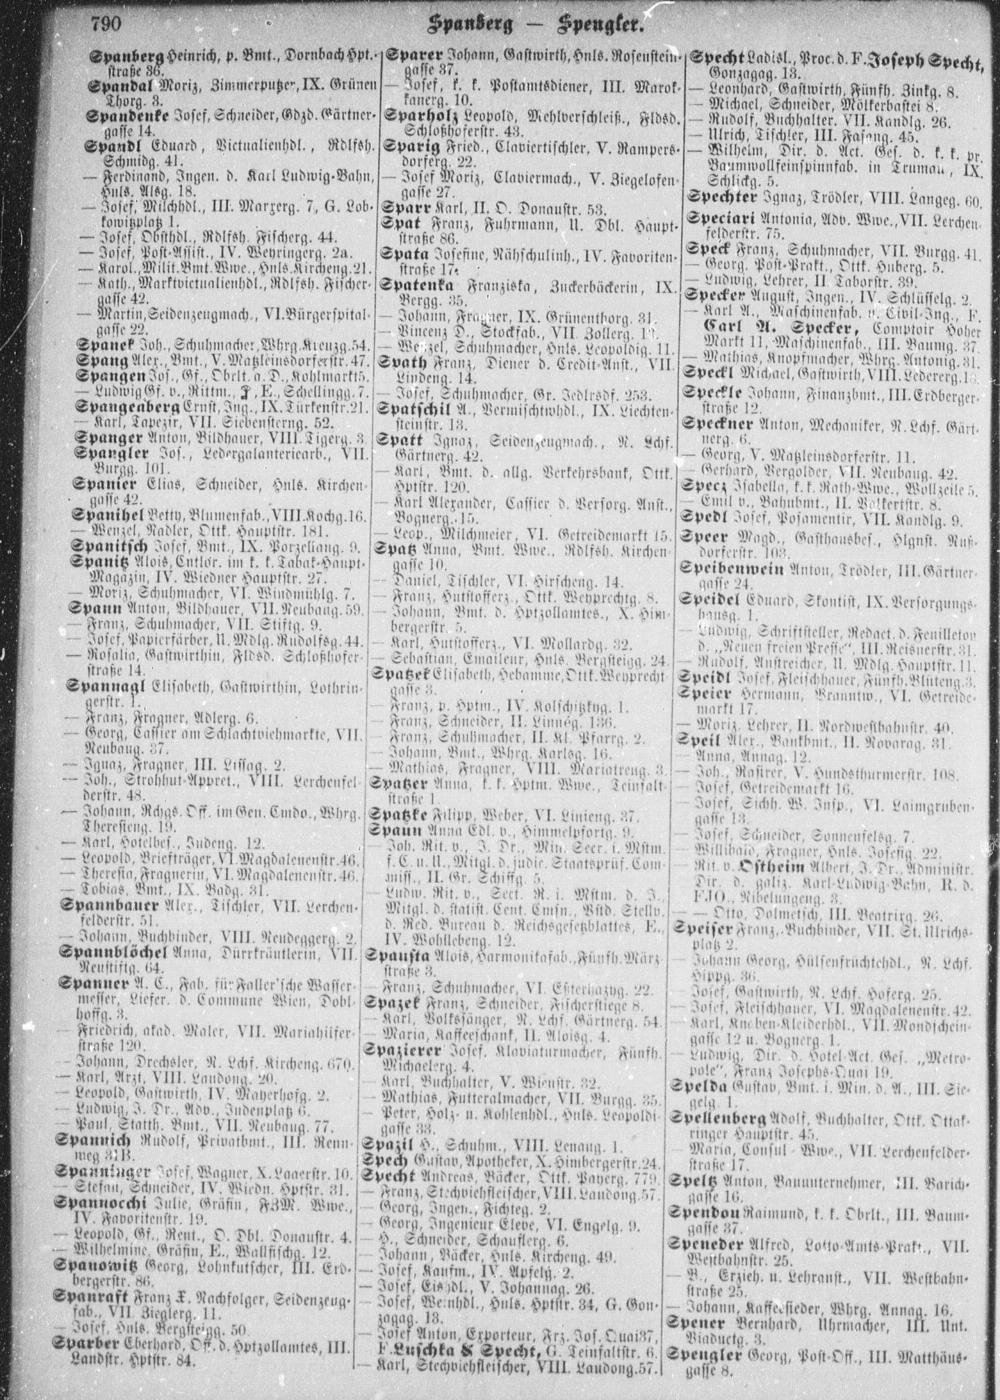 790
Spanberg — Spengler.
Spanberg Heinrich, p. Bmt., Dornbach Hpt.-
straße 36.
Spandal Moriz, Zimmerputzer, IX. Grünen
Thorg. 3.
Spandenke Josef, Schneider, Gdzd. Gärtner-
gasse 14.
Spandl Eduard, Victualienhdl., Rdlfsh.
Schmidg. 41.
— Ferdinand, Ingen. d. Karl Ludwig-Bahn,
Hnls. Alsg. 18.
— Josef, Milchhdl., III. Marxerg. 7, G. Lob-
kowitzplatz 1.
— Josef, Obsthdl., Rdlfsh. Fischerg. 44.
— Josef, Post-Assist., IV. Weyringerg. 2a.
— Karol., Milit. Bmt. Wwe., Hnls. Kircheng. 21.
— Kath., Marktvictualienhdl., Rdlfsh. Fischer-
gasse 42.
— Martin, Seidenzeugmach., VI. Bürgerspital-
gasse 22.
Spanek Joh., Schuhmacher, Whrg. Kreuzg. 54.
Spang Alex., Bmt., V. Matzleinsdorferstr. 47.
Spangen Jos., Gf., Obrlt. a. D., Kohlmarkt 5.
— Ludwig Gf. v., Rittm., J, E., Schellingg. 7.
Spangenberg Ernst, Ing., IX. Türkenstr. 21.
— Karl, Tapezir, VII. Siebensterng. 52.
Spanger Anton, Bildhauer, VIII. Tigerg. 3.
Spangler Jos., Ledergalantericarb., VII.
Burgg. 101.
Spanier Elias, Schneider, Hnls. Kirchen-
gasse 42.
Spanihel Betty, Blumenfab., VIII. Kochg. 16.
— Wenzel, Nadler, Ottk. Hauptstr. 181.
Spanitsch Josef, Bmt., IX. Porzellang. 9.
Spanitz Alois, Cntlor. im k. k. Tabak-Haupt-
Magazin, IV. Wiedner Hauptstr. 27.
— Moriz, Schuhmacher, VI. Windmühlg. 7.
Spann Anton, Bildhauer, VII. Neubaug. 59.
— Franz, Schuhmacher, VII. Stiftg. 9.
— Josef, Papierfärber, U. Mdlg. Rudolfsg. 44.
— Rosalia, Gastwirthin, Fldsd. Schloßhofer-
straße 14.
Spannagl Elisabeth, Gastwirthin, Lothrin-
gerstr. 1.
— Franz, Fragner, Adlerg. 6.
— Georg, Cassier am Schlachtviehmarkte, VII.
Neubaug. 37.
— Ignaz, Fragner, III. Lissag. 2.
— Joh., Strohhut-Appret., VIII. Lerchenfel-
derstr. 48.
— Johann, Rchgs. Off. im Gen. Cmdo., Whrg.
Theresieng. 19.
— Karl, Hotelbes., Judeng. 12.
— Leopold, Briefträger, VI. Magdalenenstr. 46.
— Theresia, Fragnerin, VI. Magdalenenstr. 46.
— Tobias, Bmt., IX. Badg. 31.
Spannbauer Alex., Tischler, VII. Lerchen-
felderstr. 51.
— Johann, Buchbinder, VIII. Neudeggerg. 2.
Spannblöchel Anna, Dürrkräutlerin, VII.
Neustiftg. 64.
Spanner A. C., Fab. für Faller'sche Wasser-
messer, Liefer. d. Commune Wien, Dobl-
hoffg. 3.
— Friedrich, akad. Maler, VII. Mariahilfer-
straße 120.
— Johann, Drechsler, N. Lchf. Kircheng. 670.
— Karl, Arzt, VIII. Laudong. 20.
— Leopold, Gastwirth, IV. Mayerhofg. 2.
— Ludwig, J. Dr., Adv., Judenplatz 6.
— Paul, Statth. Bmt., VII. Neubaug. 77.
Spannich Rudolf, Privatbmt., III. Renn-
weg 31B.
Spanninger Josef, Wagner, X. Laaerstr. 10.
— Stefan, Schneider, IV. Wiedn. Hptstr. 31.
Spannocchi Julie, Gräfin, FZM. Wwe.,
IV. Favoritenstr. 19.
— Leopold, Gf., Rent., O. Dbl. Donaustr. 4.
— Wilhelmine, Gräfin, E., Wallfischg. 12.
Spanowitz Georg, Lohnkutscher, III. Erd-
bergerstr. 86.
Spanraft Franz X. Nachfolger, Seidenzeug-
fab., VII. Zieglerg. 11.
— Josef, Hnls. Bergsteigg. 50.
Sparber Eberhard, Off. d. Hptzollamtes, III.
Landstr. Hptstr. 84.
Sparer Johann, Gastwirth, Hnls. Rosenstein-
gasse 37.
— Josef, k. k. Postamtsdiener, III. Marok-
kanerg. 10.
Sparholz Leopold, Mehlverschleiß., Fldsd.
Schloßhoferstr. 43.
Sparig Fried., Claviertischler, V. Rampers-
dorferg. 22.
— Josef Moriz, Claviermach., V. Ziegelofen-
gasse 27.
Sparr Karl, II. O. Donaustr. 53.
Spat Franz, Fuhrmann, U. Dbl. Haupt-
straße 86.
Spata Josefine, Nähschulinh., IV. Favoriten-
straße 17.
Spatenka Franziska, Zuckerbäckerin, IX.
Bergg. 35.
— Johann, Fragner, IX. Grünenthorg. 31.
— Vincenz D., Stockfab., VII. Zollerg.
— Wenzel, Schuhmacher, Hnls. Leopoldig. 11.
Spath Franz, Diener d. Credit-Anst., VII.
Lindeng. 14.
— Josef, Schuhmacher, Gr. Jedlrsdf. 253.
Spatschil A., Vermischtwhdl., IX. Liechten-
steinstr. 13.
Spatt Ignaz, Seidenzeugmach., N. Lchf.
Gärtnerg. 42.
— Karl, Bmt. d. allg. Verkehrsbank, Ottk.
Hptstr. 120.
— Karl Alexander, Cassier d. Versorg. Anst.,
Bognerg. 15.
— Leop., Milchmeier, VI. Getreidemarkt 15.
Spatz Anna, Bmt. Wwe., Rdlfsh. Kirchen-
gasse 10.
— Daniel, Tischler, VI. Hirscheng. 14.
— Franz, Hutstofferz., Ottk. Weyprechtg. 8.
— Johann, Bmt. d. Hptzollamtes, X. Him-
bergerstr. 5.
— Karl, Hutstofferz., VI. Mollardg. 32.
— Sebastian, Emaileur, Hnls. Bergsteigg. 24.
Spatzek Elisabeth, Hebamme, Ottk. Weyprecht-
gasse 3.
— Franz, p. Hptm., IV. Kolschitzkyg. 1.
— Franz, Schneider, II. Linnég. 136.
— Franz, Schuhmacher, II. Kl. Pfarrg. 2.
— Johann, Bmt., Whrg. Karlsg. 16.
— Mathias, Fragner, VIII. Mariatreug. 3.
Spatzer Anna, k. k. Hptm. Wwe., Teinfalt-
straße 1.
Spatzke Filipp, Weber, VI. Linieng. 37.
Spaun Anna Edl. v., Himmelpfortg. 9.
— Joh. Rit. v., J. Dr., Min. Secr. i. Mstm.
f. C. u. U., Mitgl. d. judic. Staatsprüf. Com-
miss., II. Gr. Schiffg. 5.
— Ludw. Rit. v., Sect. R. i. Mstm. d. J.,
Mitgl. d. statist. Cent. Cmsn., Vstd. Stellv.
d. Red. Bureau d. Reichsgesetzblattes, E.,
IV. Wohllebeng. 12.
Spausta Alois, Harmonikafab., Fünfh. März-
straße 3.
— Franz, Schuhmacher, VI. Eßterhazyg. 22.
Spazek Franz, Schneider, Fischerstiege 8.
— Karl, Volkssänger, N. Lchf. Gärtnerg. 54.
— Maria, Kaffeeschank, II. Aloisg. 4.
Spazierer Josef, Klaviaturmacher, Fünfh.
Michaelerg. 4.
— Karl, Buchhalter, V. Wienstr. 32.
— Mathias, Futteralmacher, VII. Burgg. 35.
— Peter, Holz- u. Kohlenhdl., Hnls. Leopoldi-
gasse 33.
Spazil H., Schuhm., VIII. Lenaug. 1.
Spech Gustav, Apotheker, X. Himbergerstr. 24.
Specht Andreas, Bäcker, Ottk. Payerg. 779.
— Franz, Stechviehfleischer, VIII. Laudong. 57.
— Georg, Ingen., Fichteg. 2.
— Georg, Ingenieur Eleve, VI. Engelg. 9.
— H., Schneider, Schauflerg. 6.
— Johann, Bäcker, Hnls. Kircheng. 49.
— Josef, Kaufm., IV. Apfelg. 2.
— Josef, Eishdl., V. Johannag. 26.
— Josef, Weinhdl., Hnls. Hptstr. 34, G. Gon-
zagag. 13.
— Josef Anton, Exporteur, Frz. Jos. Quai 37,
F. Luschka & Specht, G. Teinfaltstr. 6.
— Karl, Stechviehfleischer, VIII. Laudong. 57.
Specht Ladisl., Proc. d. F. Joseph Specht,
Gonzagag. 13.
— Leonhard, Gastwirth, Fünfh. Zinkg. 8.
— Michael, Schneider, Mölkerbastei 8.
— Rudolf, Buchhalter, VII. Kandlg. 26.
— Ulrich, Tischler, III. Fasang. 45.
— Wilhelm, Dir. d. Act. Ges. d. k. k. pr.
Baumwollfeinspinnfab. in Trumau, IX.
Schlickg. 5.
Spechter Ignaz, Trödler, VIII. Langeg. 60.
Speciari Antonia, Adv. Wwe., VII. Lerchen-
felderstr. 75.
Speck Franz, Schuhmacher, VII. Burgg. 41.
— Georg, Post-Prakt., Ottk. Huberg. 5.
— Ludwig, Lehrer, II. Taborstr. 39.
Specker August, Ingen., IV. Schlüsselg. 2.
— Karl A., Maschinenfab. u. Civil-Ing., F.
Carl A. Specker, Comptoir Hoher
Markt 11, Maschinenfab. III. Baumg. 37.
— Mathias, Knopfmacher, Whrg. Antonig. 31.
Speckl Michael, Gastwirth, VIII. Ledererg. 13.
Speckle Johann, Finanzbmt., III. Erdberger-
straße 12.
Speckner Anton, Mechaniker, N. Lchf. Gärt-
nerg. 6.
— Georg, V. Matzleinsdorferstr. 11.
— Gerhard, Vergolder, VII. Neubaug. 42.
Specz Isabella, k. k. Rath-Wwe., Wollzeile 5.
— Emil v., Bahnbmt., II. Volkertstr. 8.
Spedl Josef, Posamentir, VII. Kandlg. 9.
Speer Magd., Gasthausbes., Hlgnst. Nuß-
dorferstr. 103.
Speibenwein Anton, Trödler, III. Gärtner-
gasse 24.
Speidel Eduard, Skontist, IX. Versorgungs-
hausg. 1.
— Ludwig, Schriftsteller, Redact. d. Feuilleton
d. „Neuen freien Presse", III. Reisnerstr. 31.
— Rudolf, Anstreicher, U. Mdlg. Hauptstr. 11.
Speidl Josef, Fleischhauer, Fünfh. Blüteng. 3.
Speier Hermann, Branntw., VI. Getreide-
markt 17.
— Moriz, Lehrer, II. Nordwestbahnstr. 40.
Speil Alex., Bankbmt., II. Novarag. 31.
— Anna, Annag. 12.
— Joh., Rasirer, V. Hundsthurmerstr. 108.
— Josef, Getreidemarkt 16.
— Josef, Sichh. W. Insp., VI. Laimgruben-
gasse 13.
— Josef, Schneider, Sonnenfelsg. 7.
— Willibald, Fragner, Hnls. Josefig. 22.
— Rit. v. Ostheim Albert, J. Dr., Administr.
Dir. d. galiz. Karl-Ludwig-Bahn, R. d.
FJO., Nibelungeng. 3.
— — Otto, Dolmetsch, III. Beatrixg. 26.
Speiser Franz, Buchbinder, VII. St. Ulrichs-
platz 2.
— Johann Georg, Hülsenfrüchtehdl., N. Lchf.
Hippg. 36.
— Josef, Gastwirth, N. Lchf. Hoferg. 25.
— Josef, Fleischhauer, VI. Magdalenenstr. 42.
— Karl, Knaben-Kleiderhdl., VII. Mondschein-
gasse 12 u. Bognerg. 1.
— Ludwig, Dir. d. Hotel-Act. Ges. „Metro-
pole", Franz Josephs-Quai 19.
Spelda Gustav, Bmt. i. Min. d. A., III. Sie-
gelg. 1.
Spellenberg Adolf, Buchhalter, Ottk. Ottak-
ringer Hauptstr. 45.
— Maria, Consul-Wwe., VII. Lerchenfelder-
straße 17.
Speltz Anton, Bauunternehmer, III. Barich-
gasse 16.
Spendou Raimund, k. k. Obrlt., III. Baum-
gasse 37.
Speneder Alfred, Lotto-Amts-Prakt., VII.
Westbahnstr. 25.
— B., Erzieh. u. Lehranst., VII. Westbahn-
straße 25.
— Johann, Kaffeesieder, Whrg. Annag. 16.
Spener Bernhard, Uhrmacher, III. Unt.
Viaductg. 3.
Spengler Georg, Post-Off., III. Matthäus-
gasse 8.